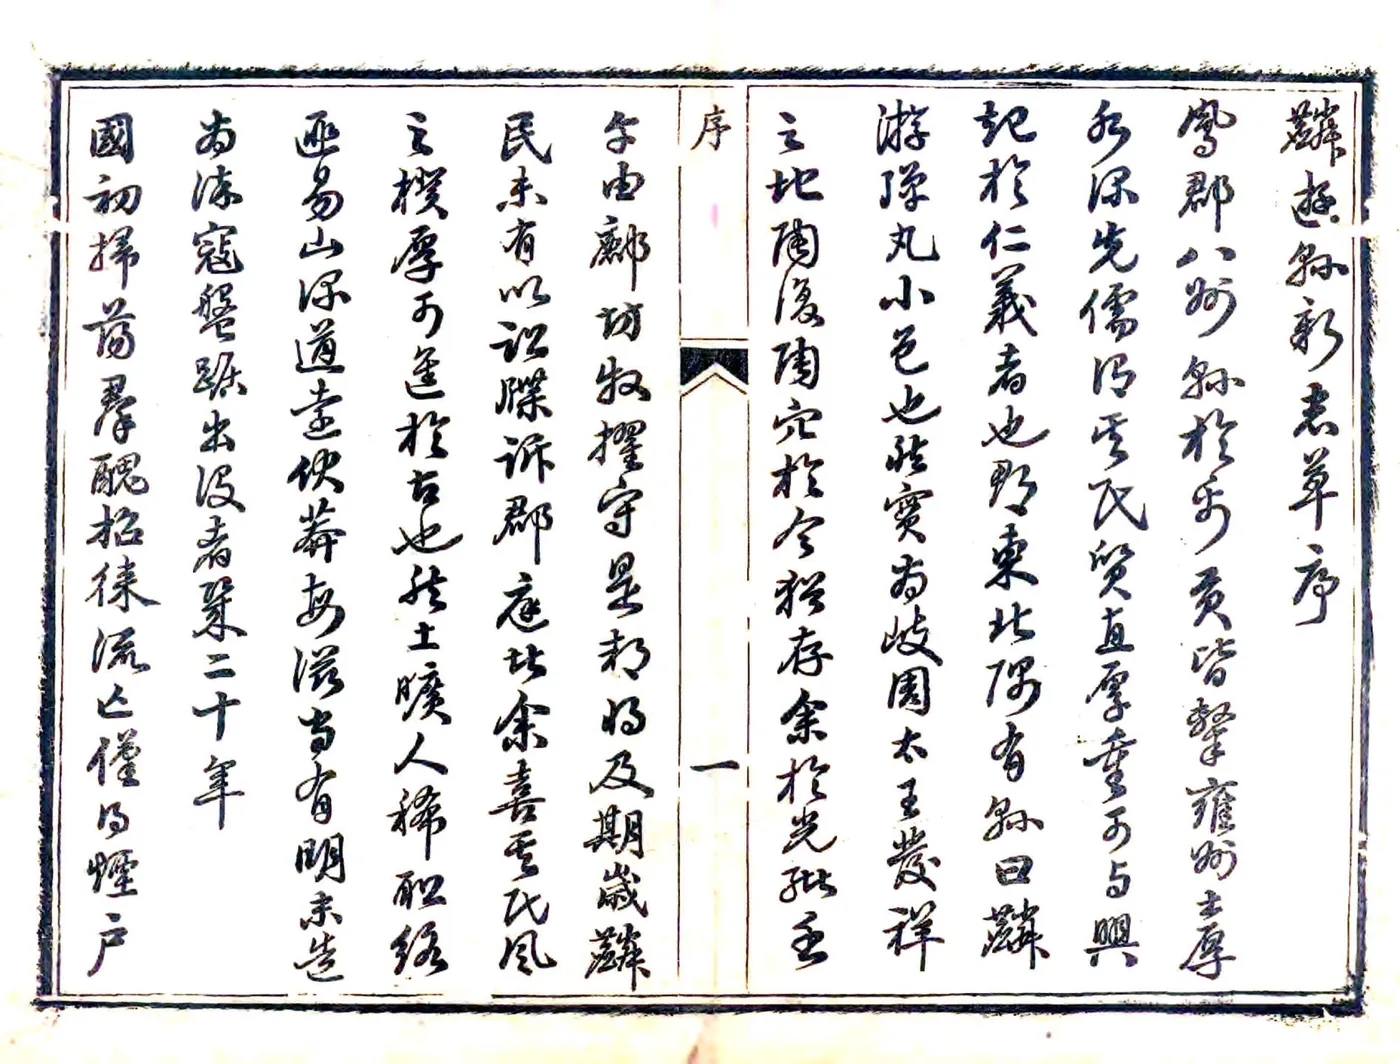 麟遊縣新志草序
鳳郡八州縣於禹貢皆擊雍州土厚
水深先儒謂其民質直厚重可與興
起於仁義者也郡東北隅有縣曰麟
游彈丸小邑也然實為岐周太王發祥
之地陶復陶穴於今猶存余於光緒壬
序
一
午由鄜坊牧擢守是郡將及期歲麟
民未有以訟牒訴郡庭者余喜其民風
之樸厚可進於古也然土曠人稀聯絡
匪易山深道遠伏莽易滋當有明末造
為流寇盤踞出沒者幾二十年
國初掃蕩羣醜招徠流亡僅得煙戶